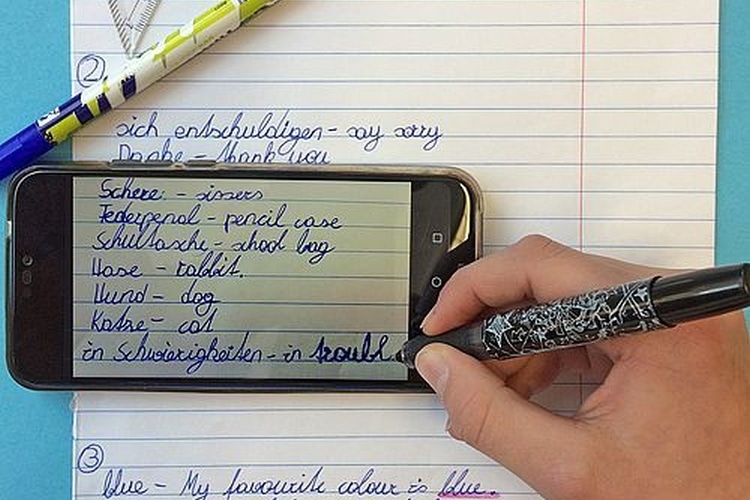 ②
sich entschuldigen - say sorry
Danke - thank you
Schere - sissers
Federpenal - pencil case
Schultasche - school bag
Hase - rabbit.
Hund - dog
Katze - cat
in Schwierigkeiten - in troubl
③
blue - My favourite colour is blue.